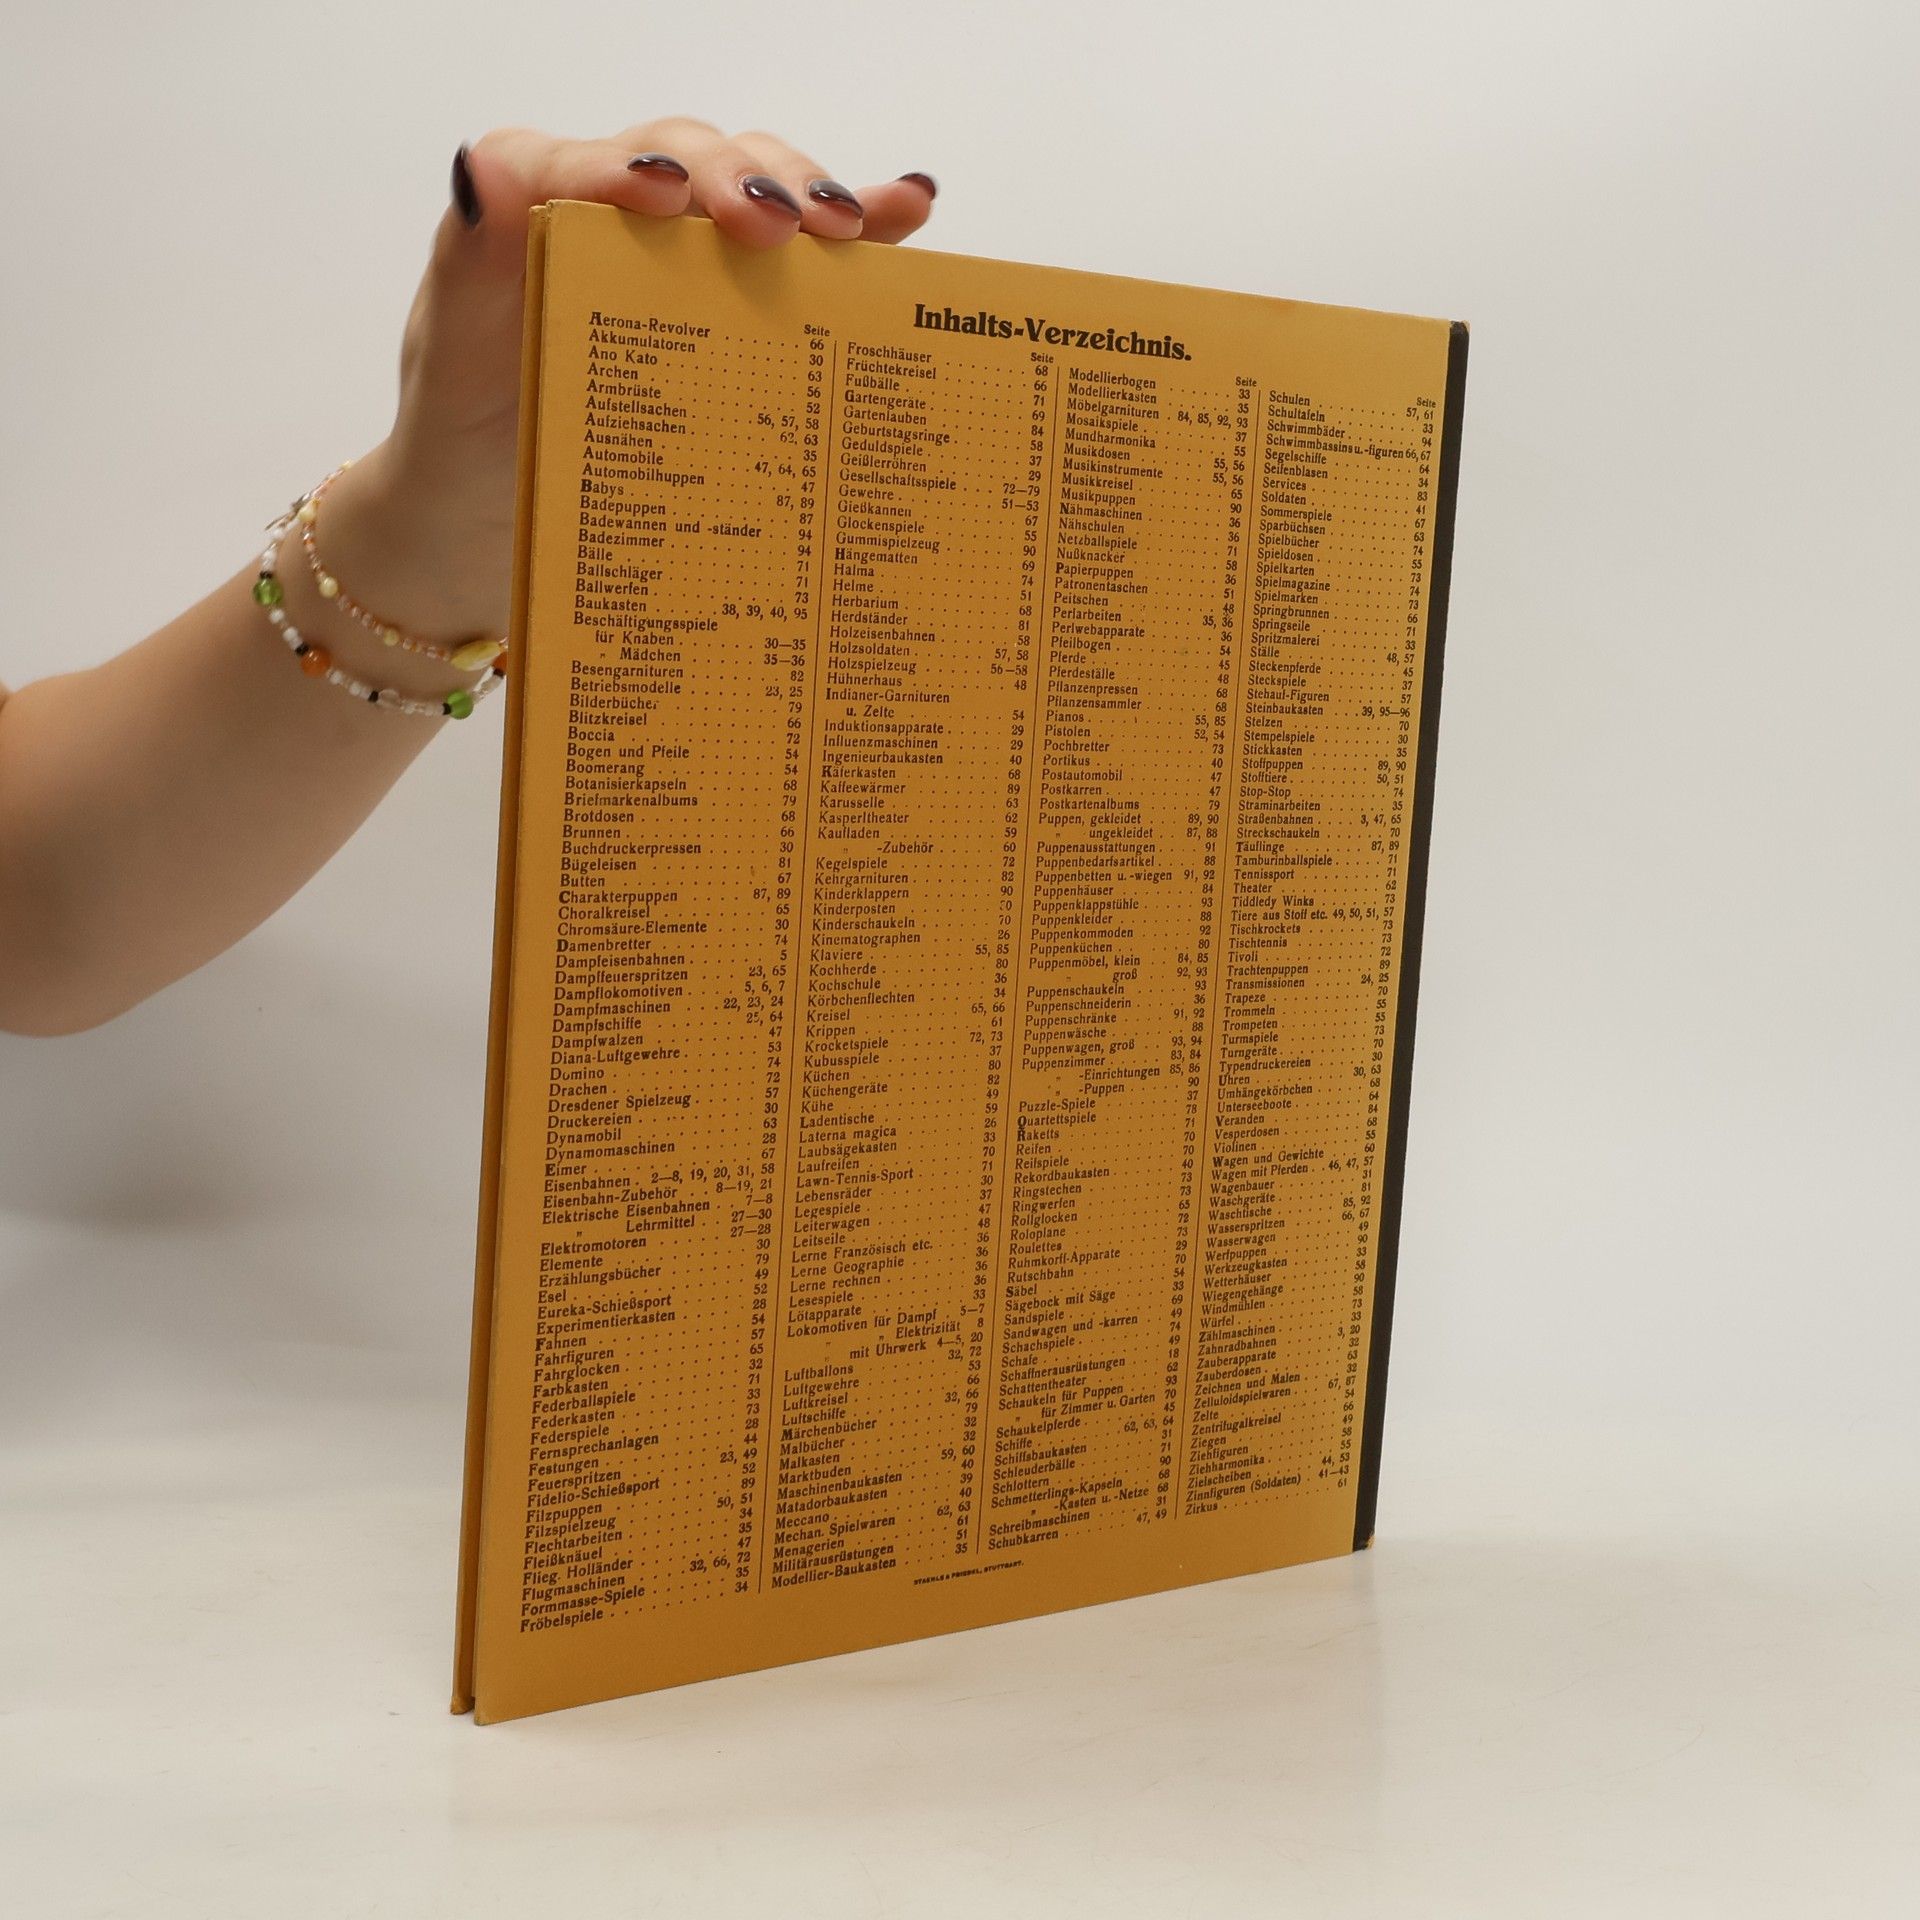 Inhalts-Verzeichnis.
Seite
Aerona-Revolver . . . . . . 66
Akkumulatoren . . . . . . 30
Ano Kato . . . . . . 63
Archen . . . . . . 56
Armbrüste . . . . . . 52
Aufstellsachen . . . 56, 57, 58
Aufziehsachen . . . . 62, 63
Ausnähen . . . . . . 35
Automobile . . . . 47, 64, 65
Automobilhuppen . . . . . . 47
Babys . . . . . . 87, 89
Badepuppen . . . . . . 87
Badewannen und -ständer . . 94
Badezimmer . . . . . . 94
Bälle . . . . . . 71
Ballschläger . . . . . . 71
Ballwerfen . . . . . . 73
Baukasten . . . . 38, 39, 40, 95
Beschäftigungsspiele
für Knaben . . . . . 30—35
„ Mädchen . . . . . 35—36
Besengarnituren . . . . . . 82
Betriebsmodelle . . . . 23, 25
Bilderbücher . . . . . . 79
Blitzkreisel . . . . . . 66
Boccia . . . . . . 72
Bogen und Pfeile . . . . . . 54
Boomerang . . . . . . 54
Botanisierkapseln . . . . . . 68
Briefmarkenalbums . . . . . 79
Brotdosen . . . . . . 68
Brunnen . . . . . . 66
Buchdruckerpressen . . . . . 30
Bügeleisen . . . . . . 81
Butten . . . . . . 67
Charakterpuppen . . . . 87, 89
Choralkreisel . . . . . . 65
Chromsäure-Elemente . . . . 30
Damenbretter . . . . . . 74
Dampfeisenbahnen . . . . . 5
Dampffeuerspritzen . . . 23, 65
Dampflokomotiven . . . 5, 6, 7
Dampfmaschinen . . 22, 23, 24
Dampfschiffe . . . . 25, 64
Dampfwalzen . . . . . . 47
Diana-Luftgewehre . . . . . 53
Domino . . . . . . 74
Drachen . . . . . . 72
Dresdener Spielzeug . . . . 57
Druckereien . . . . . . 30
Dynamobil . . . . . . 63
Dynamomaschinen . . . . . 28
Eimer . . . . . . 67
Eisenbahnen . 2—8, 19, 20, 31, 58
Eisenbahn-Zubehör . . 8—19, 21
Elektrische Eisenbahnen . . 7—8
„ Lehrmittel . . 27—30
Elektromotoren . . . . 27—28
Elemente . . . . . . 30
Erzählungsbücher . . . . . 79
Esel . . . . . . 49
Eureka-Schießsport . . . . . 52
Experimentierkasten . . . . 28
Fahnen . . . . . . 54
Fahrfiguren . . . . . . 57
Fahrglocken . . . . . . 65
Farbkasten . . . . . . 32
Federballspiele . . . . . . 71
Federkasten . . . . . . 33
Federspiele . . . . . . 73
Fernsprechanlagen . . . . . 28
Festungen . . . . . . 44
Feuerspritzen . . . . 23, 49
Fidelio-Schießsport . . . . . 52
Filzpuppen . . . . . . 89
Filzspielzeug . . . . . 50, 51
Flechtarbeiten . . . . . . 34
Fleißknäuel . . . . . . 35
Flieg. Holländer . . . . . . 47
Flugmaschinen . . . 32, 66, 72
Formmasse-Spiele . . . . . 35
Fröbelspiele . . . . . . 34
Seite
Froschhäuser . . . . . . 68
Früchtekreisel . . . . . . 66
Fußbälle . . . . . . 71
Gartengeräte . . . . . . 69
Gartenlauben . . . . . . 84
Geburtstagsringe . . . . . . 58
Geduldspiele . . . . . . 37
Geißlerröhren . . . . . . 29
Gesellschaftsspiele . . . 72—79
Gewehre . . . . . . 51—53
Gießkannen . . . . . . 67
Glockenspiele . . . . . . 55
Gummispielzeug . . . . . . 90
Hängematten . . . . . . 69
Halma . . . . . . 74
Helme . . . . . . 51
Herbarium . . . . . . 68
Herdständer . . . . . . 81
Holzeisenbahnen . . . . . . 58
Holzsoldaten . . . . . 57, 58
Holzspielzeug . . . . 56—58
Hühnerhaus . . . . . . 48
Indianer-Garnituren
u. Zelte . . . . . . 54
Induktionsapparate . . . . . 29
Influenzmaschinen . . . . . 29
Ingenieurbaukasten . . . . . 40
Käferkasten . . . . . . 68
Kaffeewärmer . . . . . . 89
Karusselle . . . . . . 63
Kasperltheater . . . . . . 62
Kaufladen . . . . . . 59
„ -Zubehör . . . . . 60
Kegelspiele . . . . . . 72
Kehrgarnituren . . . . . . 82
Kinderklappern . . . . . . 90
Kinderposten . . . . . .
Kinderschaukeln . . . . . . 70
Kinematographen . . . . . 26
Klaviere . . . . . . 55, 85
Kochherde . . . . . . 80
Kochschule . . . . . . 36
Körbchenflechten . . . . . 34
Kreisel . . . . . . 65, 66
Krippen . . . . . . 61
Krocketspiele . . . . . 72, 73
Kubusspiele . . . . . . 37
Küchen . . . . . . 80
Küchengeräte . . . . . . 82
Kühe . . . . . . 49
Ladentische . . . . . . 59
Laterna magica . . . . . . 26
Laubsägekasten . . . . . . 33
Laufreifen . . . . . . 70
Lawn-Tennis-Sport . . . . . 71
Lebensräder . . . . . . 30
Legespiele . . . . . . 37
Leiterwagen . . . . . . 47
Leitseile . . . . . . 48
Lerne Französisch etc. . . . 36
Lerne Geographie . . . . . 36
Lerne rechnen . . . . . . 36
Lesespiele . . . . . . 36
Lötapparate . . . . . . 33
Lokomotiven für Dampf . 5—7
„ „ Elektrizität 8
„ mit Uhrwerk 4—5, 20
Luftballons . . . . . 32, 72
Luftgewehre . . . . . . 53
Luftkreisel . . . . . . 66
Luftschiffe . . . . . 32, 66
Märchenbücher . . . . . . 79
Malbücher . . . . . . 32
Malkasten . . . . . . 32
Marktbuden . . . . . 59, 60
Maschinenbaukasten . . . . 40
Matadorbaukasten . . . . . 39
Meccano . . . . . . 40
Mechan. Spielwaren . . 62, 63
Menagerien . . . . . . 61
Militärausrüstungen . . . . 51
Modellier-Baukasten . . . . 35
Seite
Modellierbogen . . . . . . 33
Modellierkasten . . . . . . 35
Möbelgarnituren . 84, 85, 92, 93
Mosaikspiele . . . . . . 37
Mundharmonika . . . . . . 55
Musikdosen . . . . . 55, 56
Musikinstrumente . . . 55, 56
Musikkreisel . . . . . . 65
Musikpuppen . . . . . . 90
Nähmaschinen . . . . . . 36
Nähschulen . . . . . . 36
Netzballspiele . . . . . . 71
Nußknacker . . . . . . 58
Papierpuppen . . . . . . 36
Patronentaschen . . . . . . 51
Peitschen . . . . . . 48
Perlarbeiten . . . . . 35, 36
Perlwebapparate . . . . . . 36
Pfeilbogen . . . . . . 54
Pferde . . . . . . 45
Pferdeställe . . . . . . 48
Pflanzenpressen . . . . . . 68
Pflanzensammler . . . . . . 68
Pianos . . . . . . 55, 85
Pistolen . . . . . . 52, 54
Pochbretter . . . . . . 73
Portikus . . . . . . 40
Postautomobil . . . . . . 47
Postkarren . . . . . . 47
Postkartenalbums . . . . . 79
Puppen, gekleidet . . . 89, 90
„ ungekleidet . . 87, 88
Puppenausstattungen . . . . 91
Puppenbedarfsartikel . . . . 88
Puppenbetten u. -wiegen 91, 92
Puppenhäuser . . . . . . 84
Puppenklappstühle . . . . . 93
Puppenkleider . . . . . . 88
Puppenkommoden . . . . . 92
Puppenküchen . . . . . . 80
Puppenmöbel, klein . . 84, 85
„ groß . . 92, 93
Puppenschaukeln . . . . . 93
Puppenschneiderin . . . . . 36
Puppenschränke . . . . 91, 92
Puppenwäsche . . . . . . 88
Puppenwagen, groß . . 93, 94
Puppenzimmer . . . . 83, 84
„ -Einrichtungen 85, 86
„ -Puppen . . . . 90
Puzzle-Spiele . . . . . . 37
Quartettspiele . . . . . . 78
Raketts . . . . . . 71
Reifen . . . . . . 70
Reifspiele . . . . . . 70
Rekordbaukasten . . . . . . 40
Ringstechen . . . . . . 73
Ringwerfen . . . . . . 73
Rollglocken . . . . . . 65
Roloplane . . . . . . 72
Roulettes . . . . . . 73
Ruhmkorff-Apparate . . . . 29
Rutschbahn . . . . . . 70
Säbel . . . . . . 54
Sägebock mit Säge . . . . . 33
Sandspiele . . . . . . 69
Sandwagen und -karren . . . 49
Schachspiele . . . . . . 74
Schafe . . . . . . 49
Schaffnerausrüstungen . . . 18
Schattentheater . . . . . . 62
Schaukeln für Puppen . . . 93
„ für Zimmer u. Garten 70
Schaukelpferde . . . . . . 45
Schiffe . . . . . 62, 63, 64
Schiffsbaukasten . . . . . . 31
Schleuderbälle . . . . . . 71
Schlottern . . . . . . 90
Schmetterlings-Kapseln . . . 68
„ -Kasten u. -Netze 68
Schreibmaschinen . . . . . 31
Schubkarren . . . . . 47, 49
Seite
Schulen . . . . . . 57, 61
Schultafeln . . . . . . 33
Schwimmbäder . . . . . . 94
Schwimmbassins u. -figuren 66, 67
Segelschiffe . . . . . . 64
Seifenblasen . . . . . . 34
Services . . . . . . 83
Soldaten . . . . . . 41
Sommerspiele . . . . . . 67
Sparbüchsen . . . . . . 63
Spielbücher . . . . . . 74
Spieldosen . . . . . . 55
Spielkarten . . . . . . 73
Spielmagazine . . . . . . 74
Spielmarken . . . . . . 73
Springbrunnen . . . . . . 66
Springseile . . . . . . 71
Spritzmalerei . . . . . . 33
Ställe . . . . . . 48, 57
Steckenpferde . . . . . . 45
Steckspiele . . . . . . 37
Stehauf-Figuren . . . . . . 57
Steinbaukasten . . . 39, 95—96
Stelzen . . . . . . 70
Stempelspiele . . . . . . 30
Stickkasten . . . . . . 35
Stoffpuppen . . . . . 89, 90
Stofftiere . . . . . . 50, 51
Stop-Stop . . . . . . 74
Straminarbeiten . . . . . . 35
Straßenbahnen . . . 3, 47, 65
Streckschaukeln . . . . . . 70
Täuflinge . . . . . . 87, 89
Tamburinballspiele . . . . . 71
Tennissport . . . . . . 71
Theater . . . . . . 62
Tiddledy Winks . . . . . . 73
Tiere aus Stoff etc. 49, 50, 51, 57
Tischkrockets . . . . . . 73
Tischtennis . . . . . . 73
Tivoli . . . . . . 72
Trachtenpuppen . . . . . . 89
Transmissionen . . . . 24, 25
Trapeze . . . . . . 70
Trommeln . . . . . . 55
Trompeten . . . . . . 55
Turmspiele . . . . . . 73
Turngeräte . . . . . . 70
Typendruckereien . . . . . 30
Uhren . . . . . . 30, 63
Umhängekörbchen . . . . . 68
Unterseeboote . . . . . . 64
Veranden . . . . . . 84
Vesperdosen . . . . . . 68
Violinen . . . . . . 55
Wagen und Gewichte . . . . 60
Wagen mit Pferden . . 46, 47, 57
Wagenbauer . . . . . . 31
Waschgeräte . . . . . . 81
Waschtische . . . . . 85, 92
Wasserspritzen . . . . 66, 67
Wasserwagen . . . . . . 49
Werfpuppen . . . . . . 90
Werkzeugkasten . . . . . . 33
Wetterhäuser . . . . . . 58
Wiegengehänge . . . . . . 90
Windmühlen . . . . . . 58
Würfel . . . . . . 73
Zählmaschinen . . . . . . 33
Zahnradbahnen . . . . 3, 20
Zauberapparate . . . . . . 32
Zauberdosen . . . . . . 63
Zeichnen und Malen . . . . 32
Zelluloidspielwaren . . 67, 87
Zelte . . . . . . 54
Zentrifugalkreisel . . . . . 66
Ziegen . . . . . . 49
Ziehfiguren . . . . . . 58
Ziehharmonika . . . . . . 55
Zielscheiben . . . . . 44, 53
Zinnfiguren (Soldaten) . 41—43
Zirkus . . . . . . 61
STAEHLE & FRIEDEL, STUTTGART.